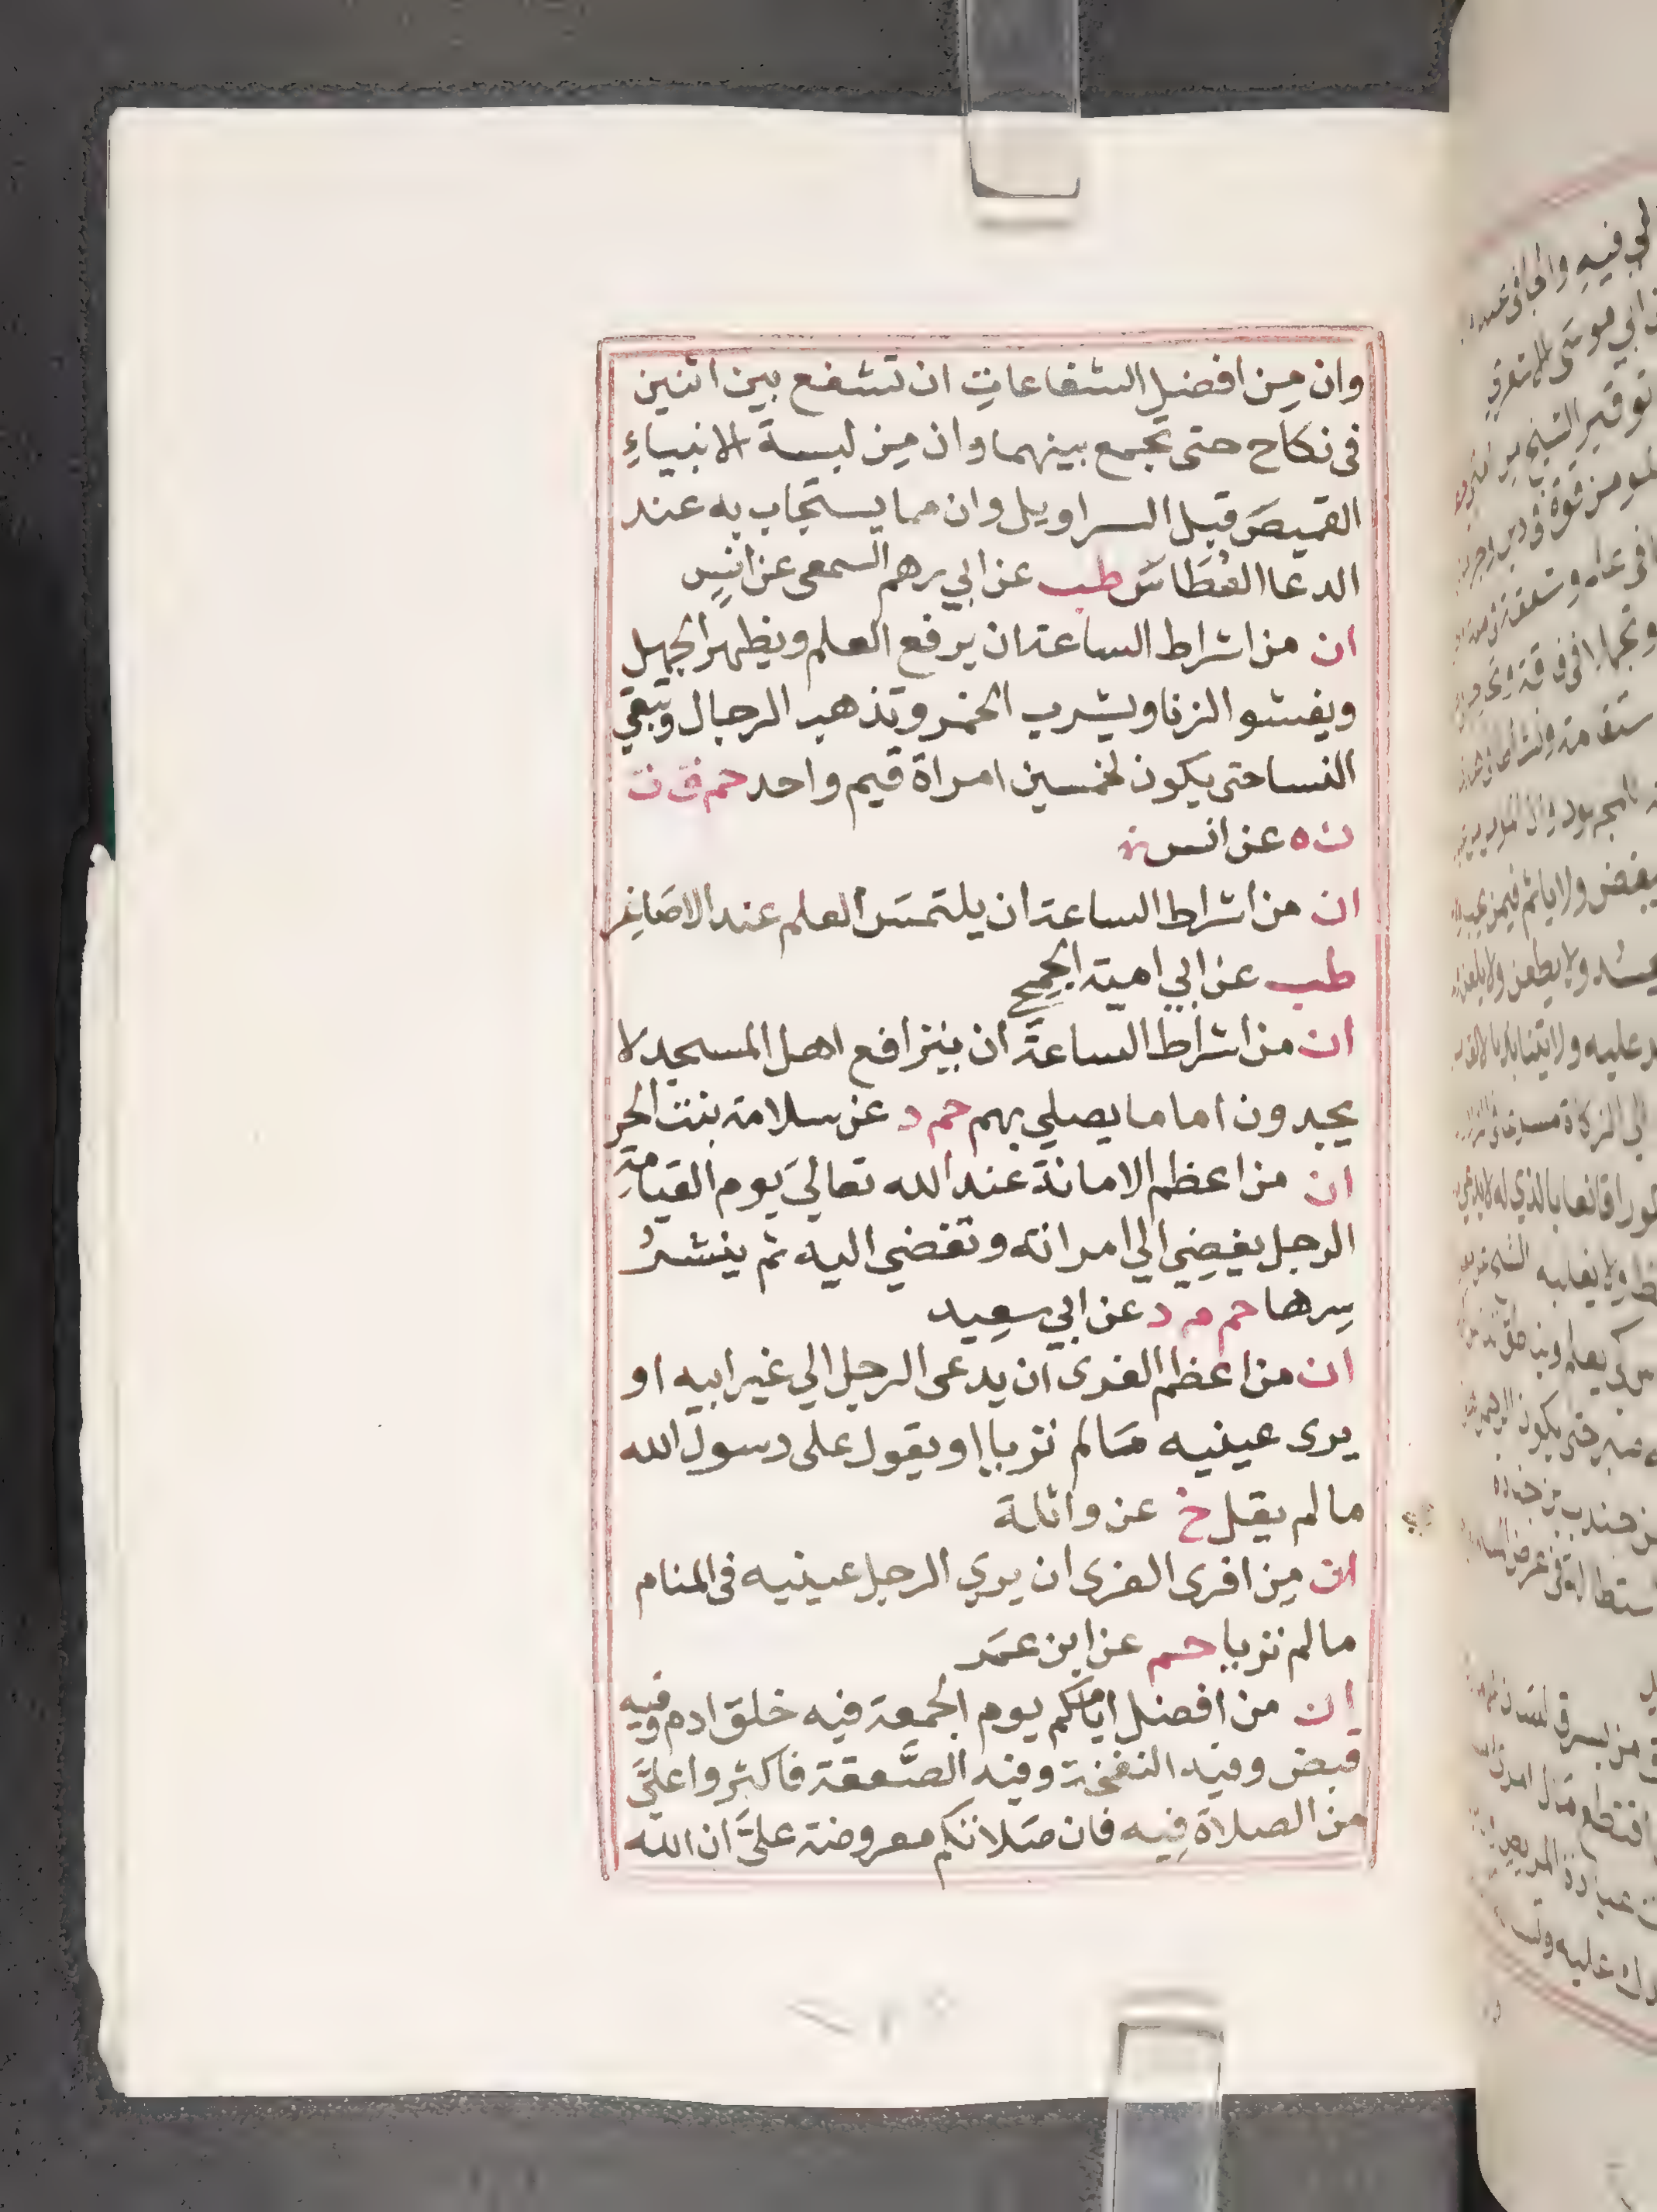 وان مِن افضل الشفاعاتِ ان تشفع بين اثنين
فى نكاح حتى تجمع بينهما وان مِن لبسة الانبياءِ
القميصَ قبل السراويل وان مما يستجاب به عند
الدعا العُطَاسَ طب عن ابي رهم السمعى عن انسٍ
ان من اشراط الساعة ان يرفع العلم ويظهر الجهل
ويفشو الزنا ويشرب الخمر وتذهب الرجال وتبقي
النسا حتى يكون لخمسين امراة قيم واحد حم ق ت
ن ه عن انس
ان من اشراط الساعة ان يلتمسَ العلم عند الاصَاغِر
طب عن ابي امية الجمحي
ان من اشراط الساعةَ ان يتزافع اهل المسجد لا
يجدون اماما يصلي بهم حم د عن سلامة بنت الحر
ان من اعظم الامانة عند الله تعاليَ يوم القيامةِ
الرجل يفضِي الي امراته وتفضي اليه ثم ينشرُ
سِرها حم م د عن ابي سعِيد
ان من اعظم الفرى ان يدعى الرجل الي غير ابيه او
يرى عينيه مَالم تريا او يقول على رسول الله
مالم يقل خ عن واثلة
ان مِن افرى الفرى ان يري الرجل عينيه فى المنام
مالم تريا حم عن ابن عمَر
ان من افضل ايامكم يوم الجمعة فيه خلق ادم وفيه
قبض وفيه النفخة وفيه الصَّعقة فاكثروا عليَّ
من الصلاة فِيه فان صَلاتكم معروضة عليَّ ان الله